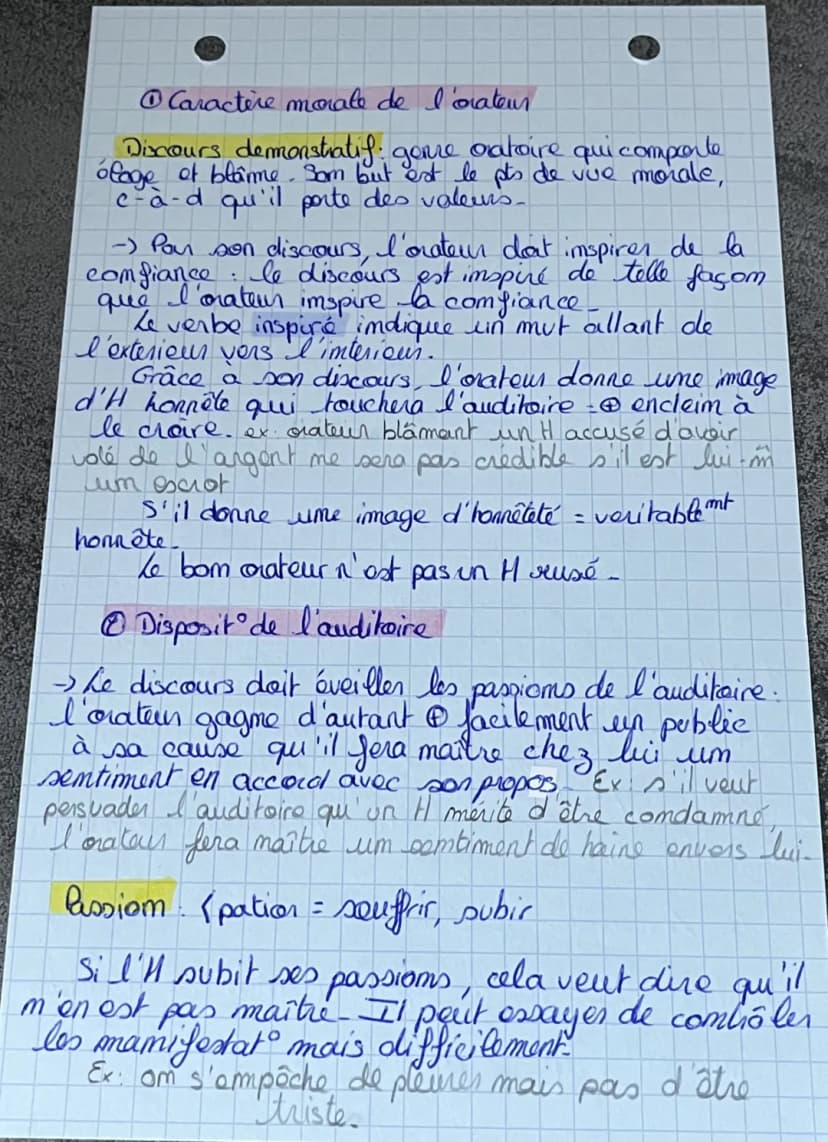 ① Caractère morale de l'orateur
Discours demonstratif: genre oratoire qui comporte
éloge et blâme. Son but est le pts de vue morale,
c-à-d qu'il porte des valeurs.
-> Par son discours, l'orateur doit inspirer de la
confiance : le discours est inspiré de telle façon
que l'orateur inspire la confiance.
Le verbe inspiré indique un mvt allant de
l'exterieur vers l'interieur.
Grâce à son discours, l'orateur donne une image
d'H honnête qui touchera l'auditoire = ⊕ encleim à
le croire. ex: orateur blâmant un H accusé d'avoir
volé de l'argent ne sera pas crédible s'il est lui-m̂
un escroc
S'il donne une image d'honnêteté = veritablemnt
honnête.
Le bon orateur n'est pas un H rusé.
② Disposit° de l'auditoire
-> Le discours doit éveiller les passions de l'auditoire.
l'orateur gagne d'autant ⊕ facilement un public
à sa cause qu'il fera naître chez lui un
sentiment en accord avec son propos. Ex: s'il veut
persuader l'auditoire qu'un H mérite d'être condamné,
l'orateur fera naître un sentiment de haine envers lui.
Passion : < patior = souffrir, subir
Si l'H subit ses passions, cela veut dire qu'il
n'en est pas maître. Il peut essayer de contrôler
les manifestat° mais difficilement.
Ex: on s'empêche de pleurer mais pas d'être
triste.